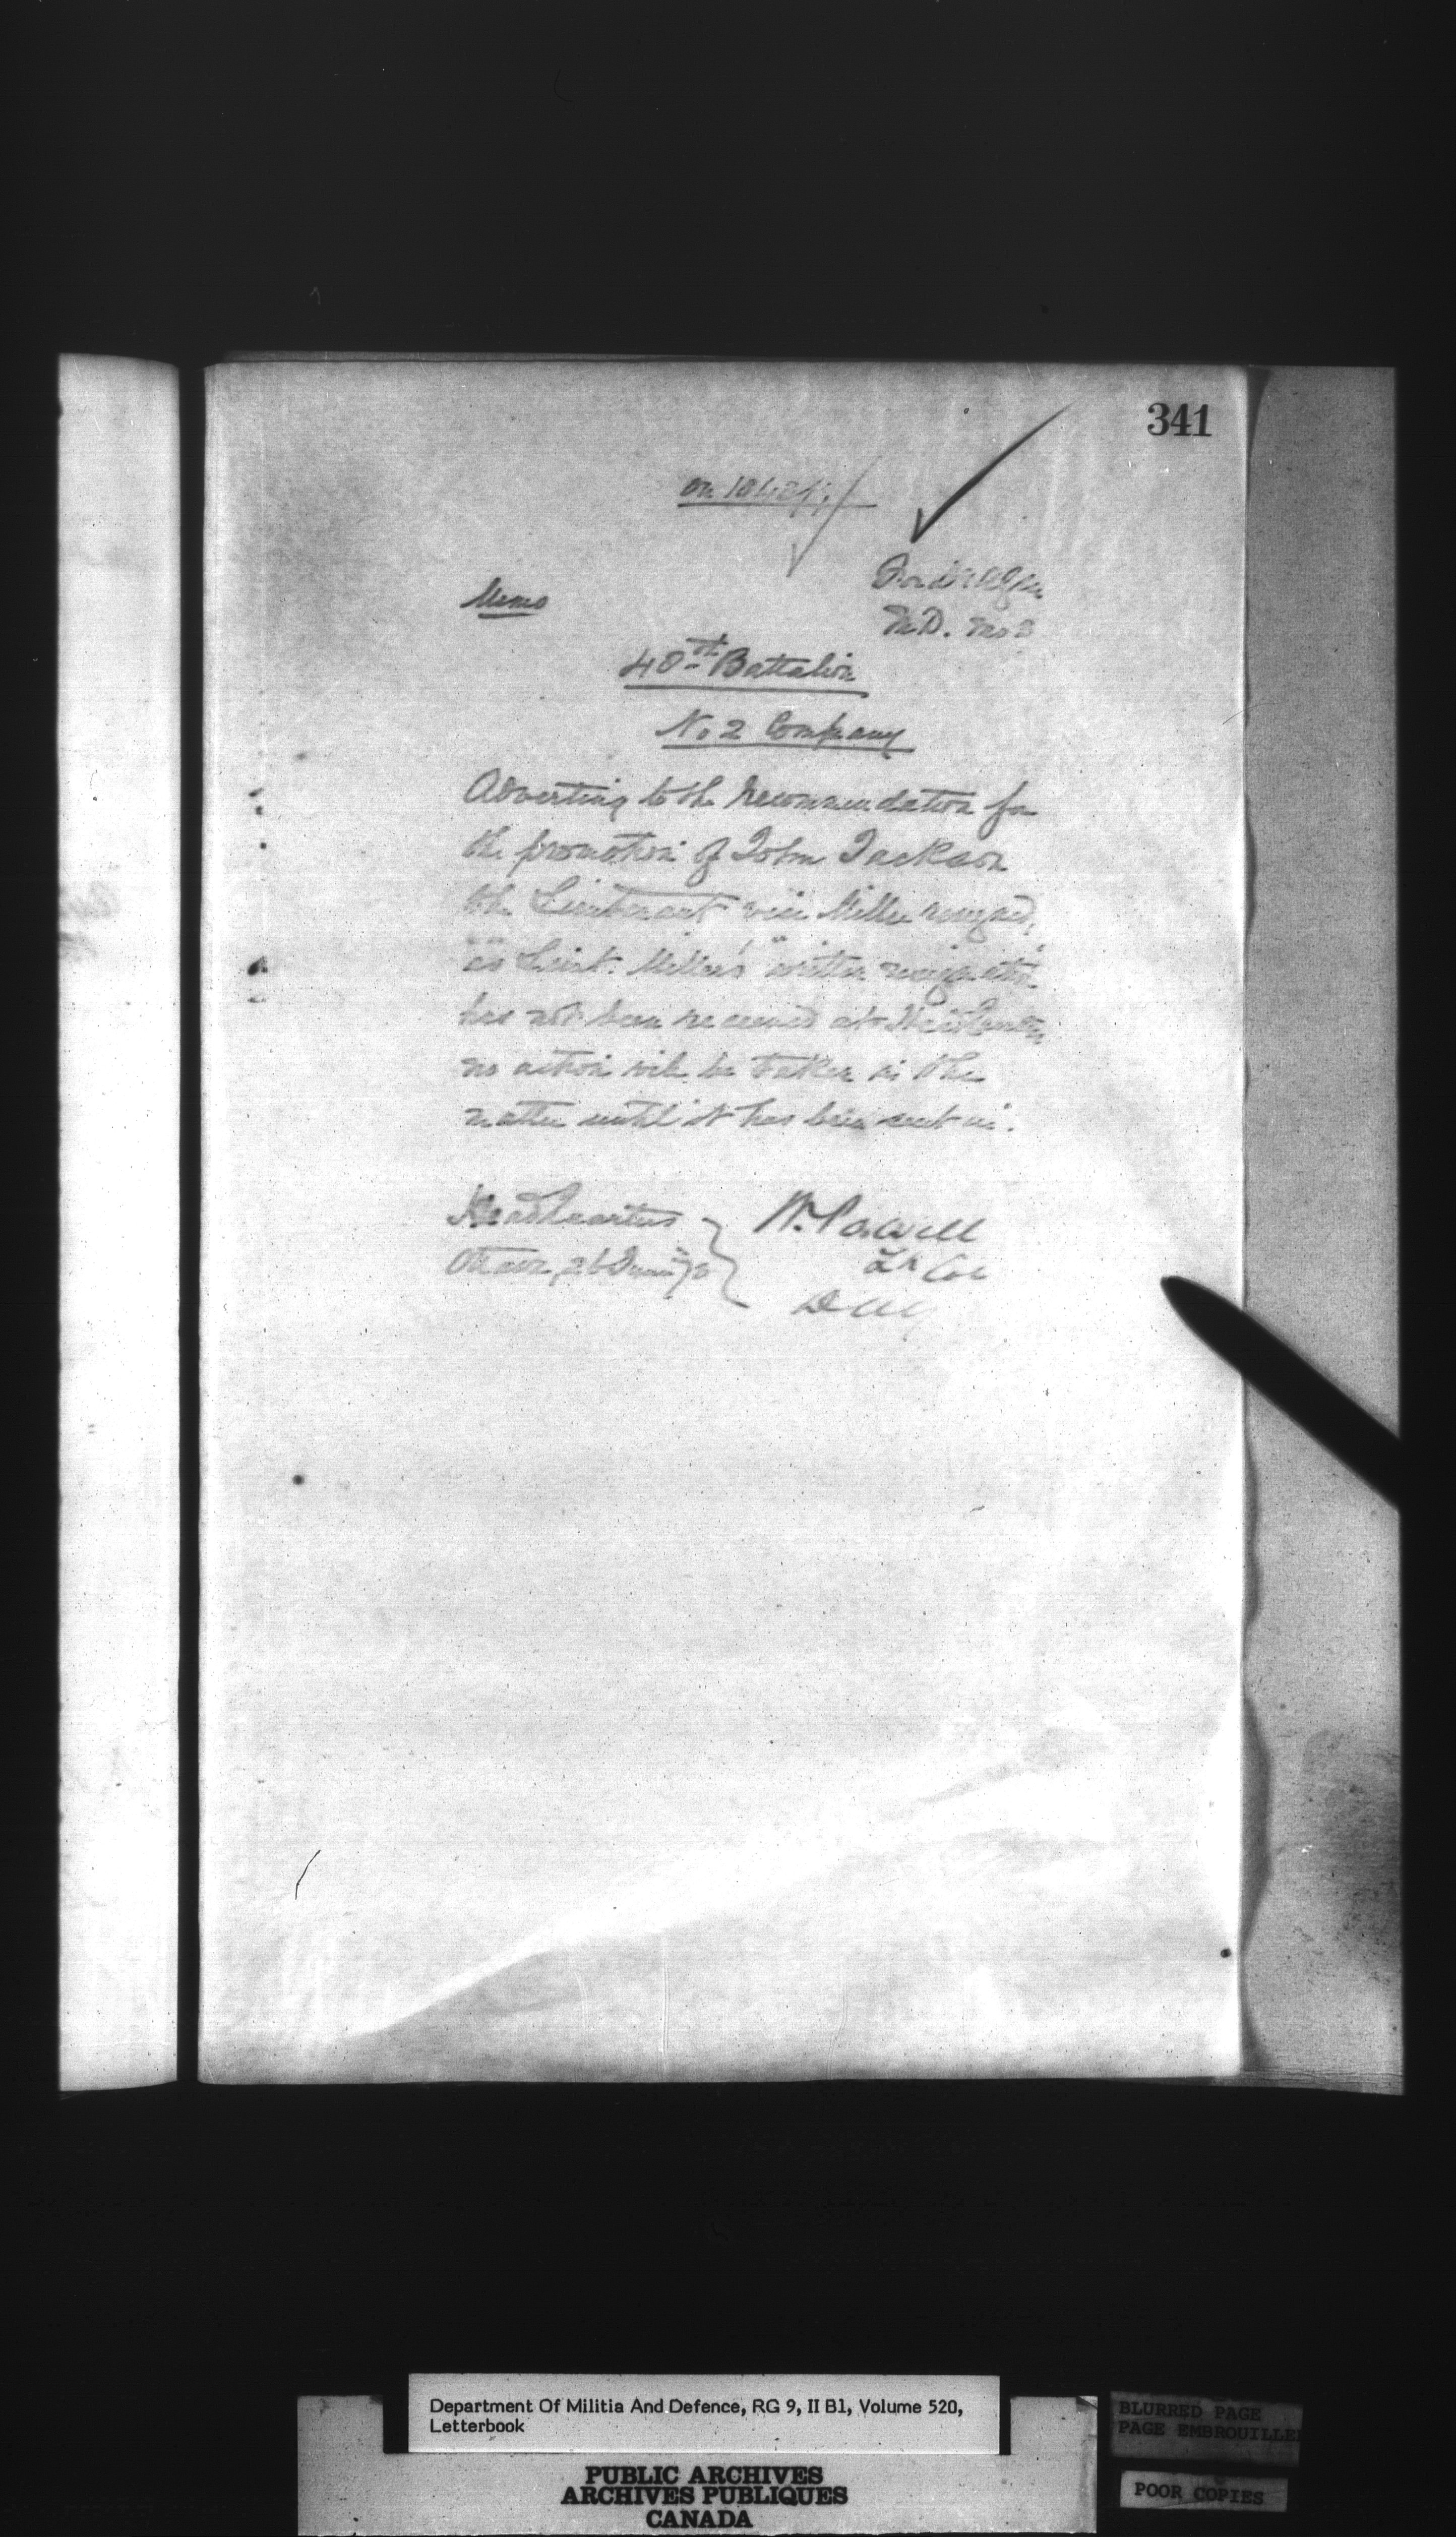 341
on
Memo
For D.A.G.
M.D. No 3
40th Battalion
No 2 Company
Adverting to the recommendation for
the promotion of John Jackson
to be Lieutenant vice Miller resigned,
as Lieut. Miller's written resignation
has not been received at HeadQuarters
no action will be taken in the
matter until it has been sent in.
HeadQuarters
Ottawa, 26 June
W. Powell
Lt Col
DAG
Department Of Militia And Defence, RG 9, II B1, Volume 520,
Letterbook
PUBLIC ARCHIVES
ARCHIVES PUBLIQUES
CANADA
BLURRED PAGE
PAGE EMBROUILLEE
POOR COPIES